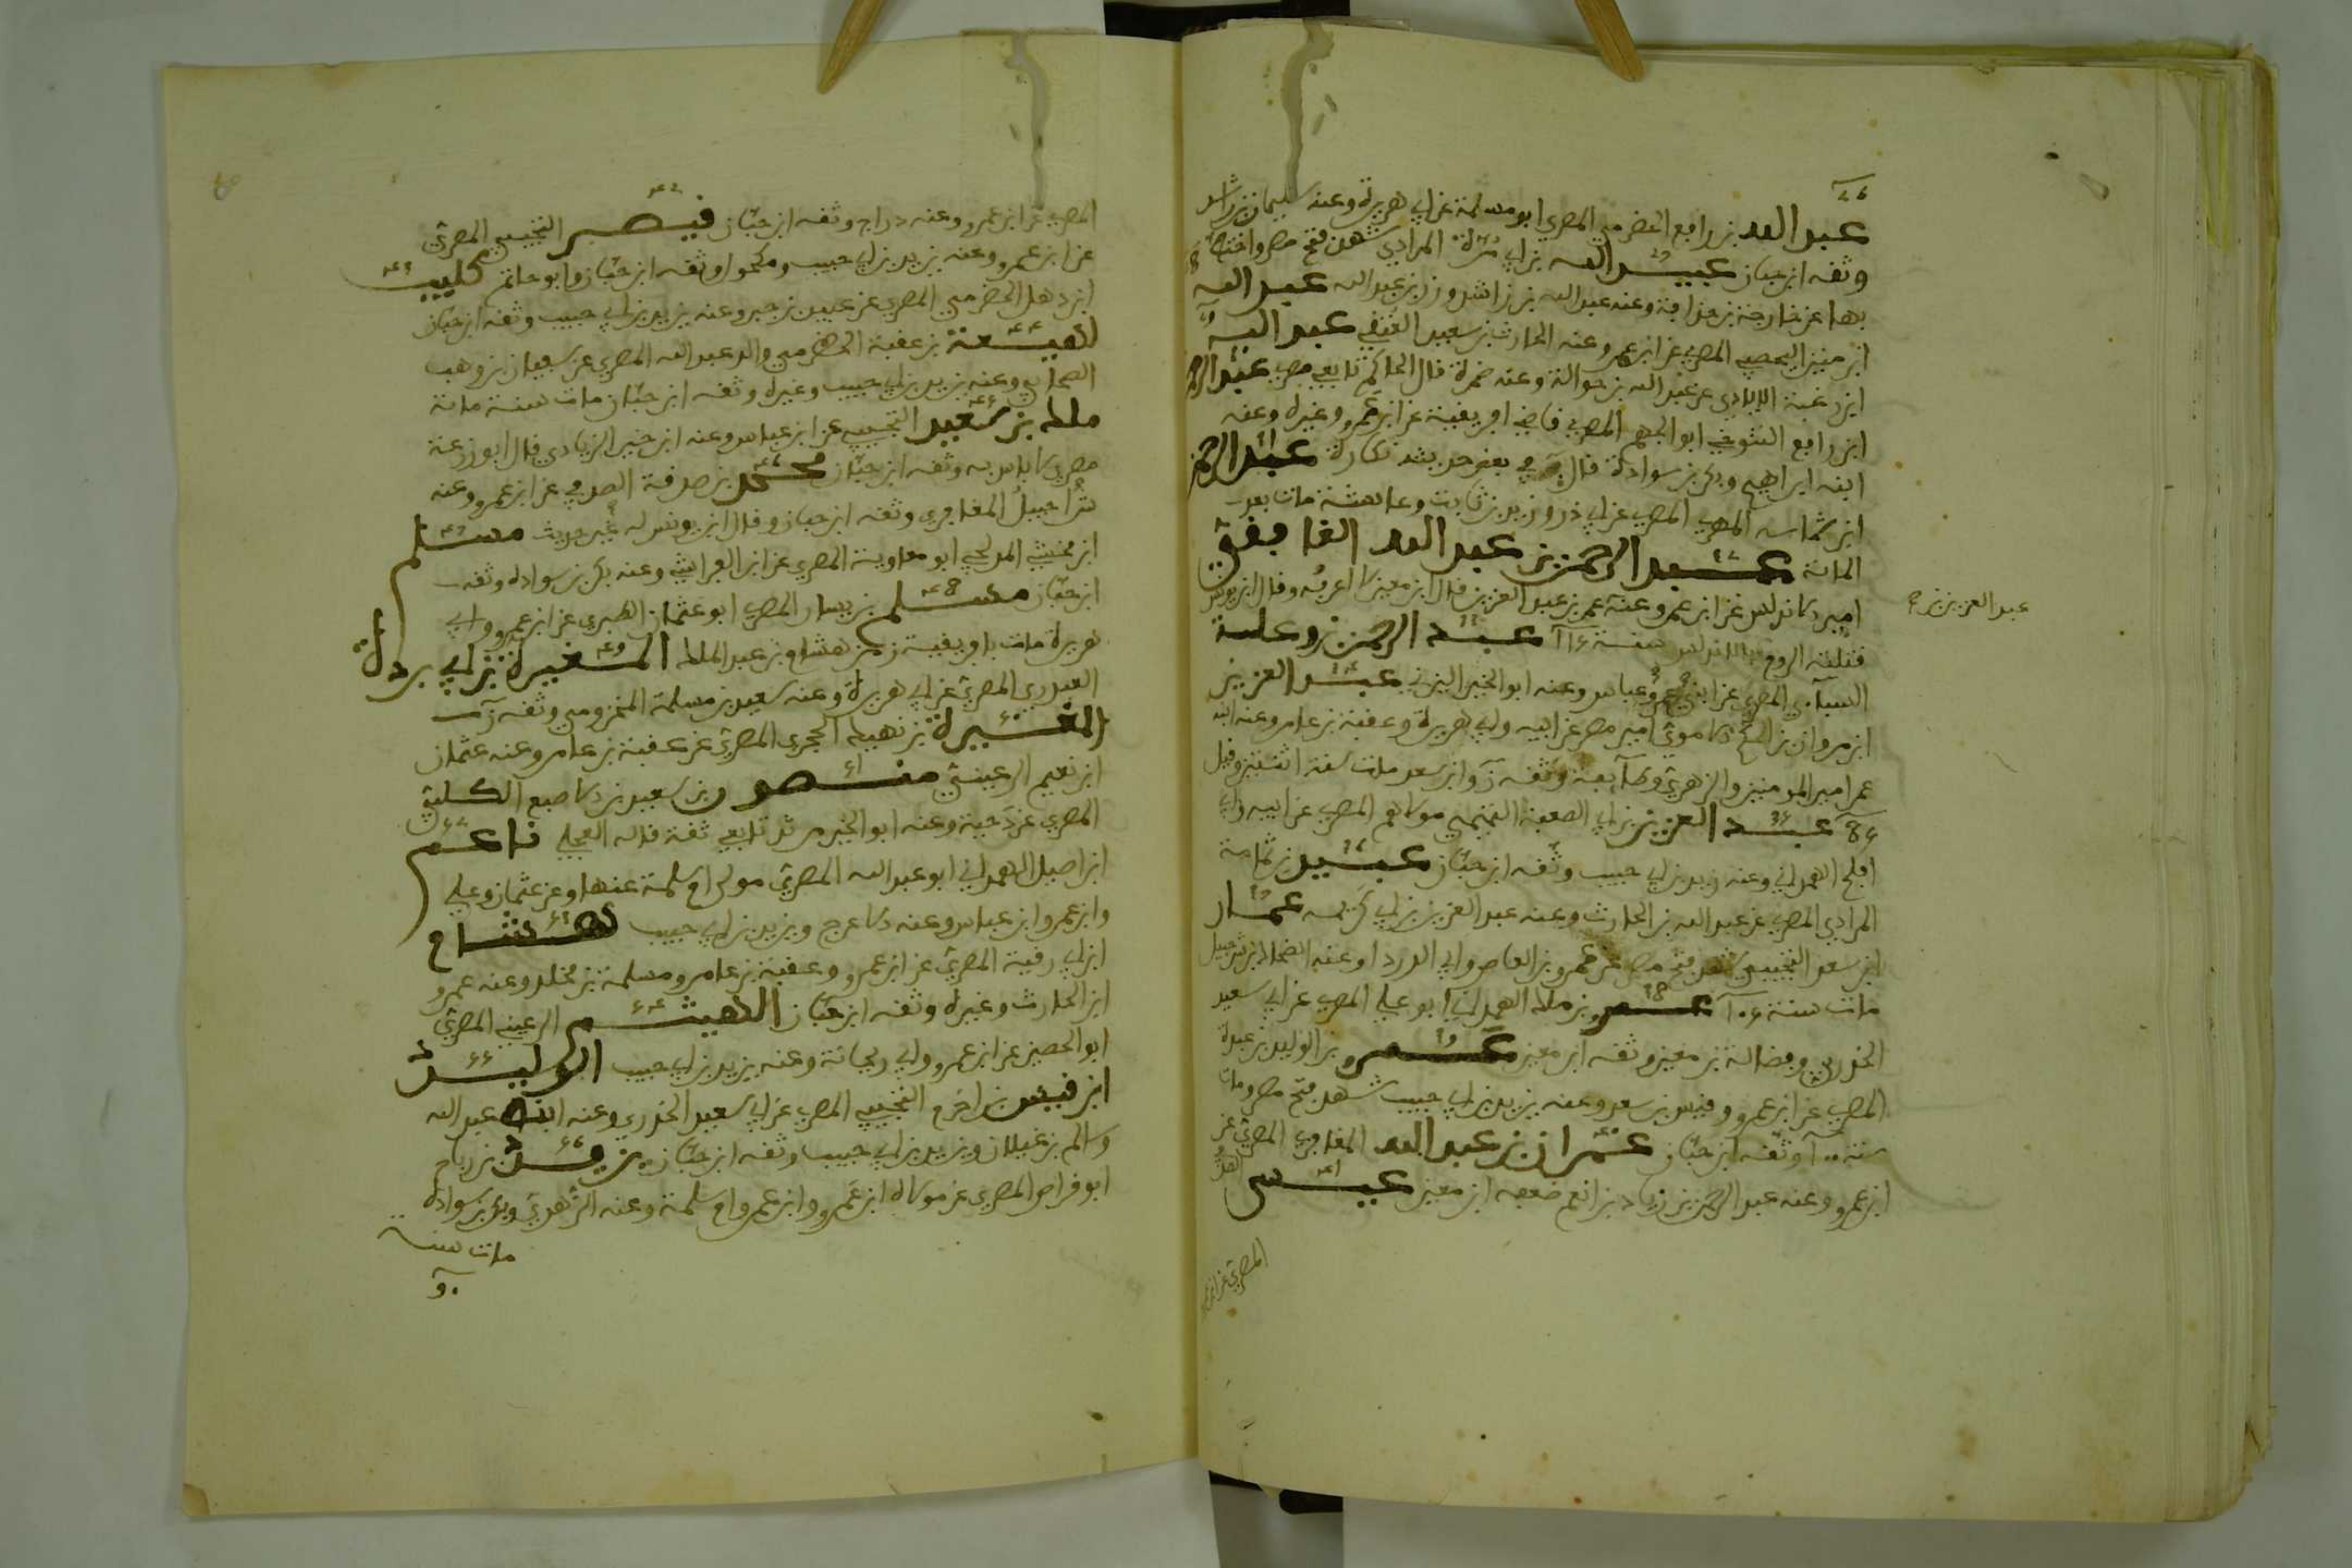 عبد الله بن رافع الحضرمي المصري ابو مسلمة عن ابي هريرة وعنه سليمان بن راشد
وثقه ابن حبان عبيد الله بن ابي مرة المرادي شهد فتح مصر واختط
بها عن خارجة بن حذافة وعنه عبد الله بن راشد ورزين بن عبد الله عبد الله
ابن منين اليحصبي المصري عن ابن عمرو وعنه الحارث بن سعيد العتقي عبد الله
ابن زغبة الايادي عن عبد الله بن حوالة وعنه ضمرة قال الحاكم تابعي مصري عبد الرحمن
ابن رافع التنوخي ابو الجهم المصري قاضي افريقية عن ابن عمرو وغيره وعنه
ابنه ابراهيم وبكر بن سوادة قال في بعض حديثه نكارة عبد الرحمن
ابن شماسه المهري المصري عن ابي ذر وزيد بن ثابت وعائشة مات بعد
المائة عبد الرحمن بن عبد الله الغافقي
امير الاندلس عن ابن عمر وعنه عمر بن عبد العزيز قال ابن معين لا اعرفه وقال ابن يونس
عبد العزيز بن
قتلته الروم بالاندلس سنة عبد الرحمن بن وعلة
السبأي المصري عن ابن عمر وعباس وعنه ابو الخير اليزني عبد العزيز
ابن مروان بن الحكم الاموي امير مصر عن ابيه وابي هريرة وعقبة بن عامر وعنه ابنه
عمر امير المومنين والزهري وطائفة وثقه ن وابن سعد مات سنة اثنتين وقيل
عبد العزيز بن ابي الصعبة التيمي مولاهم المصري عن ابيه وابي
افلح الهمداني وعنه يزيد بن ابي حبيب وثقه ابن حبان عبيد بن ثمامة
المرادي المصري عن عبد الله بن الحارث وعنه عبد العزيز بن ابي كريمه عمار
ابن سعد التجيبي شهد فتح مصر عن عمرو بن العاص وابي الدرداء وعنه الضحاك بن شرحبيل
مات سنة عمرو بن ملك الهمداني ابو علي المصري عن ابي سعيد
الخدري وفضالة بن معين وثقه ابن معين عمرو بن الوليد بن عبدة
المصري عن ابن عمرو وقيس بن سعد وعنه يزيد بن ابي حبيب شهد فتح مصر ومات
سنة وثقه ابن حبان عمران بن عبد الله المعافري المصري عن
ابن عمرو وعنه عبد الرحمن بن زياد بن انعم ضعفه ابن معين عيسى
المصري عن ابن عمرو وعنه دراج وثقه ابن حبان قيصر التجيبي المصري
عن ابن عمرو وعنه يزيد بن ابي حبيب ومكحول وثقه ابن حبان وابو حاتم كليب
ابن ذهل الحضرمي المصري عن عبيد بن جبر وعنه يزيد بن ابي حبيب وثقه ابن حبان
لهيعة بن عقبة الحضرمي والد عبد الله المصري عن سفيان بن وهب
الصحابي وعنه يزيد بن ابي حبيب وغيره وثقه ابن حبان مات سنة مائة
ملك بن سعيد التجيبي عن ابن عباس وعنه ابن خير الزيادي قال ابو زرعة
مصري لا باس به وثقه ابن حبان محمد بن صدقة الصدفي عن ابن عمرو وعنه
شراحبيل المعافري وثقه ابن حبان وقال ابن يونس له غير حديث مسلم
ابن مخشي المدلجي ابو معاوية المصري عن ابن الفراسي وعنه بكر بن سوادة وثقه
ابن حبان مسلم بن يسار المصري ابو عثمان الطنبذي عن ابن عمرو وابي
هريرة مات بافريقية زمن هشام بن عبد الملك المغيرة بن ابي بردة
العبدري المصري عن ابي هريرة وعنه سعيد بن مسلمة المخزومي وثقه ن
المغيرة بن نهيك الحجري المصري عن عقبة بن عامر وعنه عثمان
ابن نعيم الرعيني منصور بن سعيد بن الاصبع الكلبي
المصري عن دحية وعنه ابو الخير مرثد تابعي ثقة قاله العجلي ناعم
ابن اجيل الهمداني ابو عبد الله المصري مولى ام سلمة عنها وعن عثمان وعلي
وابن عمر وابن عباس وعنه الاعرج ويزيد بن ابي حبيب هشام
ابن ابي رقية المصري عن ابن عمرو وعقبة بن عامر ومسلمة بن مخلد وعنه عمرو
ابن الحارث وغيره وثقه ابن حبان الهيثم الرعيني المصري
ابو الحصين عن ابن عمرو وابي ريحانة وعنه يزيد بن ابي حبيب الوليد
ابن قيس بن اخرم التجيبي المصري عن ابي سعيد الخدري وعنه ابنه عبد الله
وسالم بن غيلان ويزيد بن ابي حبيب وثقه ابن حبان يزيد بن رباح
ابو فراس المصري عن مولاه ابن عمرو وابن عمر وام سلمة وعنه الزهري وبكر بن سوادة
مات سنة